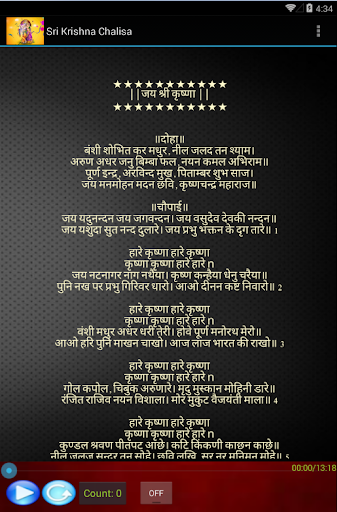 4:34
Sri Krishna Chalisa
★★★★★★★★★★★
||जय श्री कृष्णा ||
★★★★★★★★★★★
॥दोहा॥
बंशी शोभित कर मधुर, नील जलद तन श्याम।
अरुण अधर जनु बिम्बा फल, नयन कमल अभिराम॥
पूर्ण इन्द्र, अरविन्द मुख, पिताम्बर शुभ साज।
जय मनमोहन मदन छवि, कृष्णचन्द्र महाराज॥
॥चौपाई॥
जय यदुनन्दन जय जगवन्दन। जय वसुदेव देवकी नन्दन॥
जय यशुदा सुत नन्द दुलारे। जय प्रभु भक्तन के दृग तारे॥ 1
हारे कृष्णा हारे कृष्णा
कृष्णा कृष्णा हारे हारे n
जय नटनागर नाग नथैया। कृष्ण कन्हैया धेनु चरैया॥
पुनि नख पर प्रभु गिरिवर धारो। आओ दीनन कष्ट निवारो॥ 2
हारे कृष्णा हारे कृष्णा
कृष्णा कृष्णा हारे हारे n
वंशी मधुर अधर धरी तेरी। होवे पूर्ण मनोरथ मेरो॥
आओ हरि पुनि माखन चाखो। आज लाज भारत की राखो॥ 3
हारे कृष्णा हारे कृष्णा
कृष्णा कृष्णा हारे हारे n
गोल कपोल, चिबुक अरुणारे। मृदु मुस्कान मोहिनी डारे॥
रंजित राजिव नयन विशाला। मोर मुकुट वैजयंती माला॥ 4
हारे कृष्णा हारे कृष्णा
कृष्णा कृष्णा हारे हारे n
कुण्डल श्रवण पीतपट आछे। कटि किंकणी काछन काछे॥
नील जलज सुन्दर तनु सोहे। छवि लखि, सुर नर मुनिमन मोहे॥ 5
00:00/13:18
Count: 0
OFF